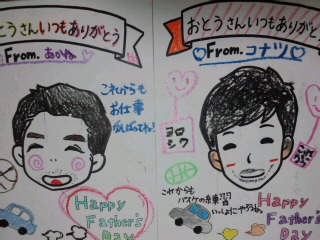 おとうさんいつもありがとう
From. あかね
これからも
お仕事
がんばってね!
Happy
Father's
Day
おとうさんいつもありがとう
From. コナツ
ヨロ
シク
これからも
バスケの練習
いっしょにやろうね。
Happy
Father's
Day